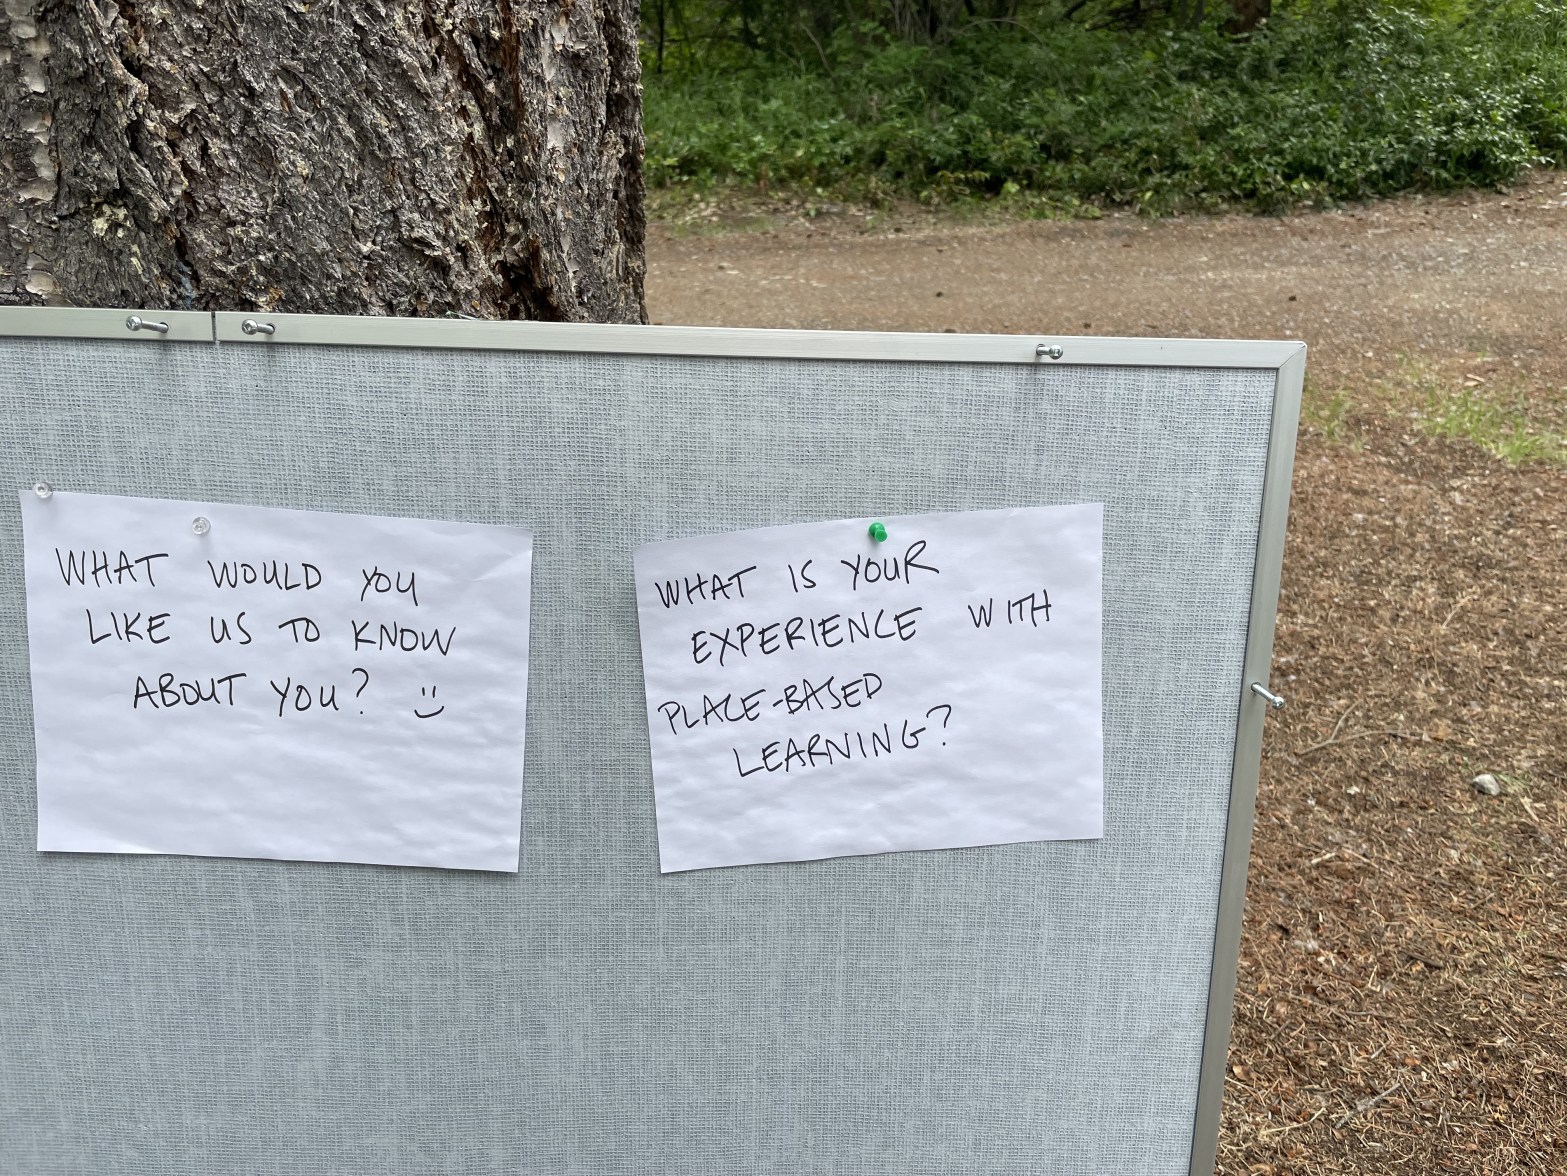 WHAT WOULD YOU
LIKE US TO KNOW
ABOUT YOU? :)
WHAT IS YOUR
EXPERIENCE WITH
PLACE-BASED
LEARNING?